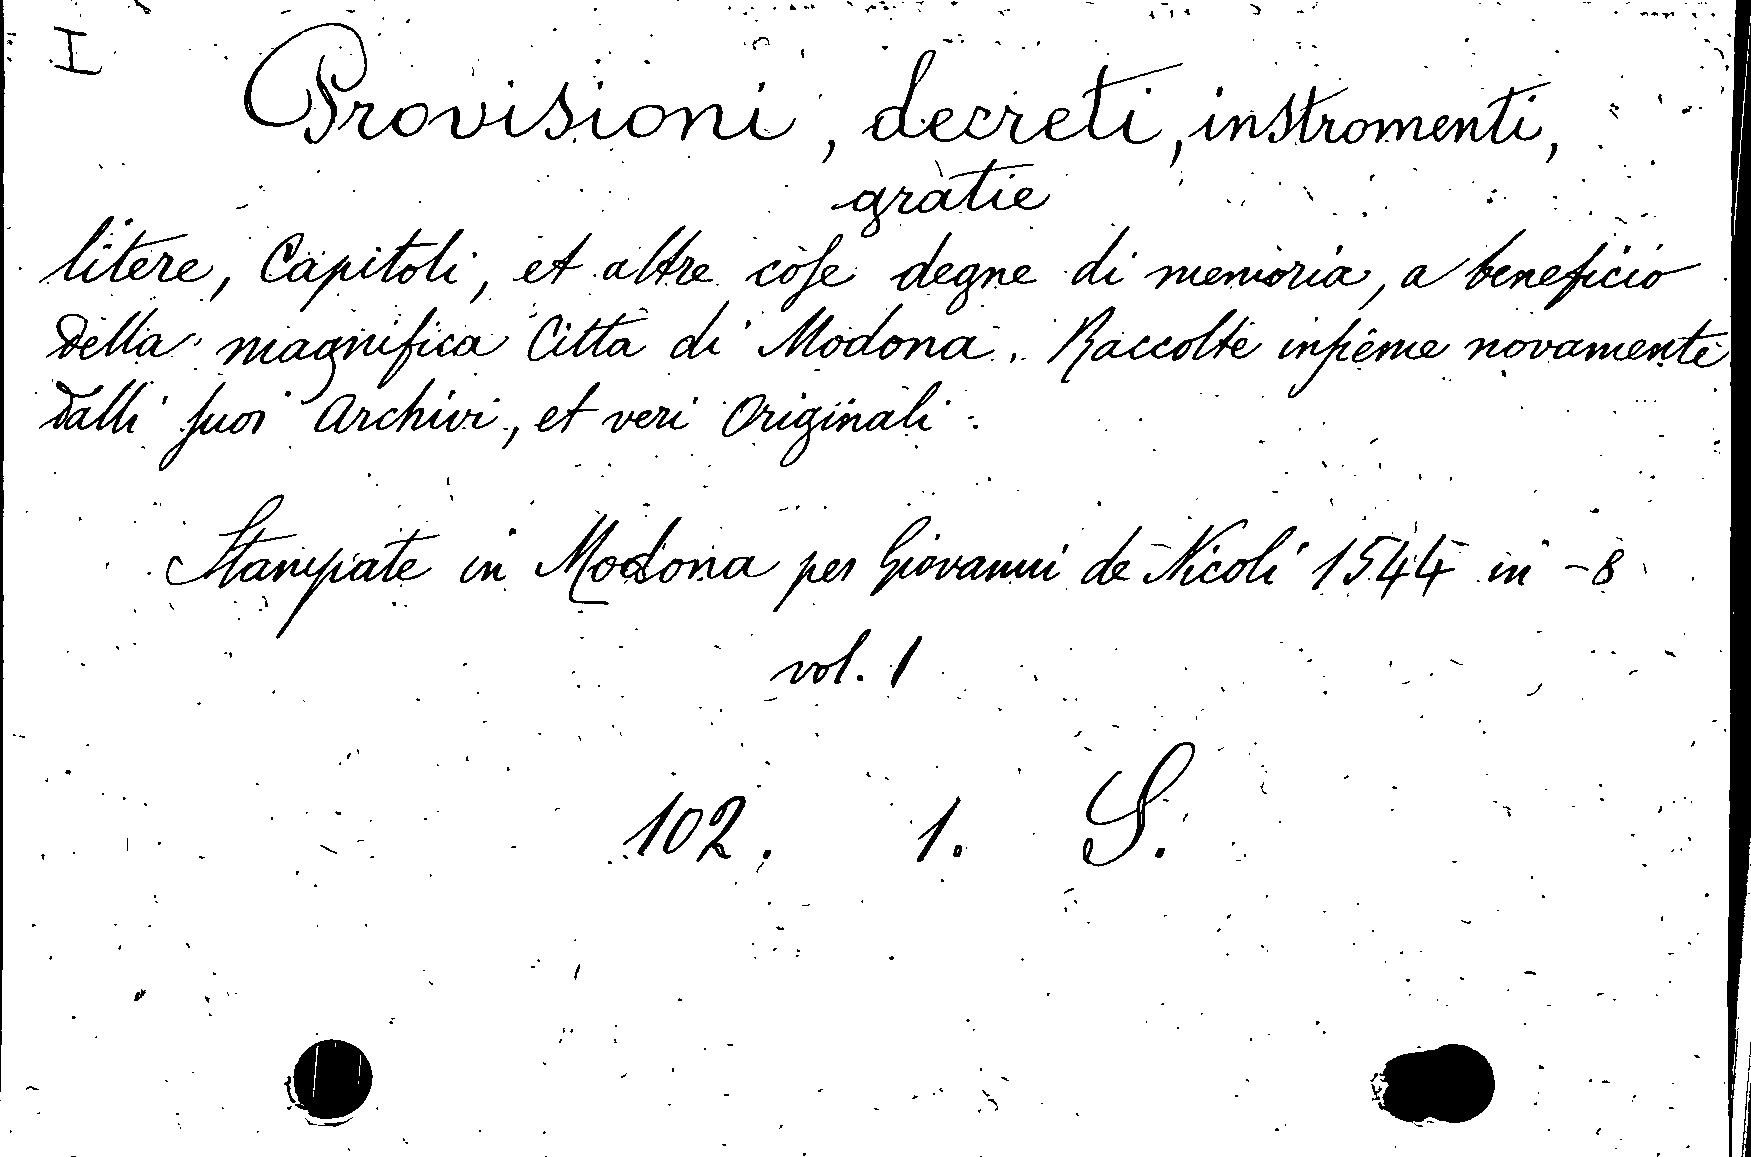 I
Provisioni, decreti, instromenti,
gratie
litere, Capitoli, et altre coſe degne di memoria, a beneficio
della magnifica Città di Modona. Raccolte inſieme novamente
dalli ſuoi Archivi, et veri Originali.
Stampate in Modona per Giovanni de Nicoli 1544 in -8
vol. 1
102. 1. S.